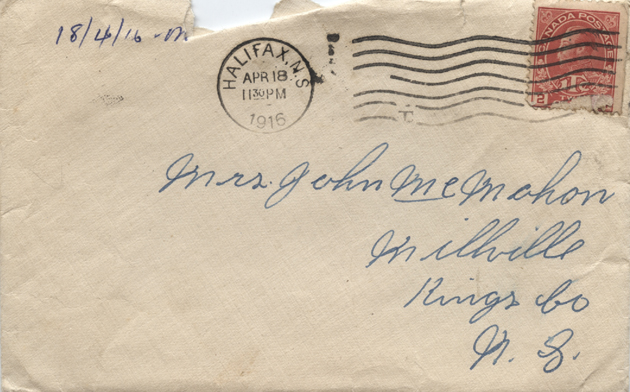 18/4/16 - M
HALIFAX, N.S
APR 18
11 30 PM
1916
CANADA POSTAGE
2
Mrs. John McMahon
Millville
Kings Co
N. S.